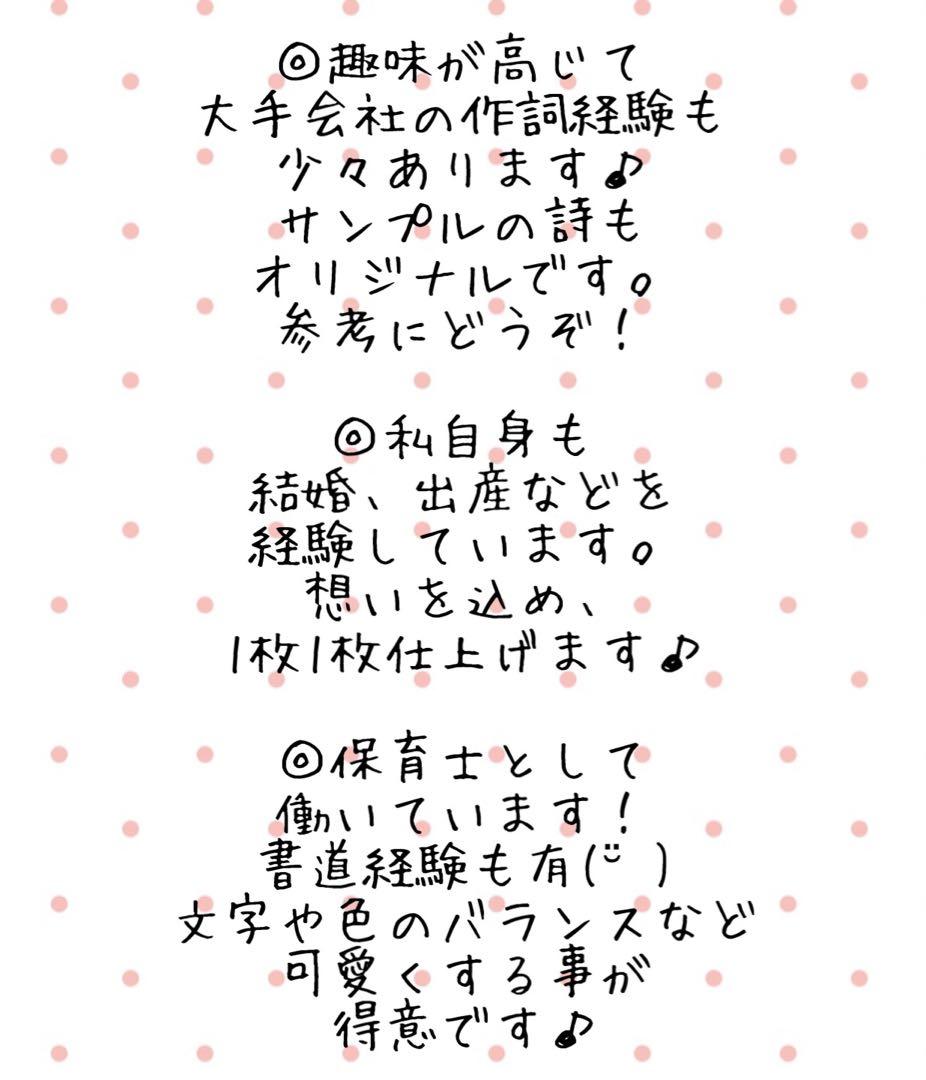 ◎趣味が高じて
大手会社の作詞経験も
少々あります♪
サンプルの詩も
オリジナルです。
参考にどうぞ!
◎私自身も
結婚、出産などを
経験しています。
想いを込め、
1枚1枚仕上げます♪
◎保育士として
働いています!
書道経験も有(¨̮ )
文字や色のバランスなど
可愛くする事が
得意です♪